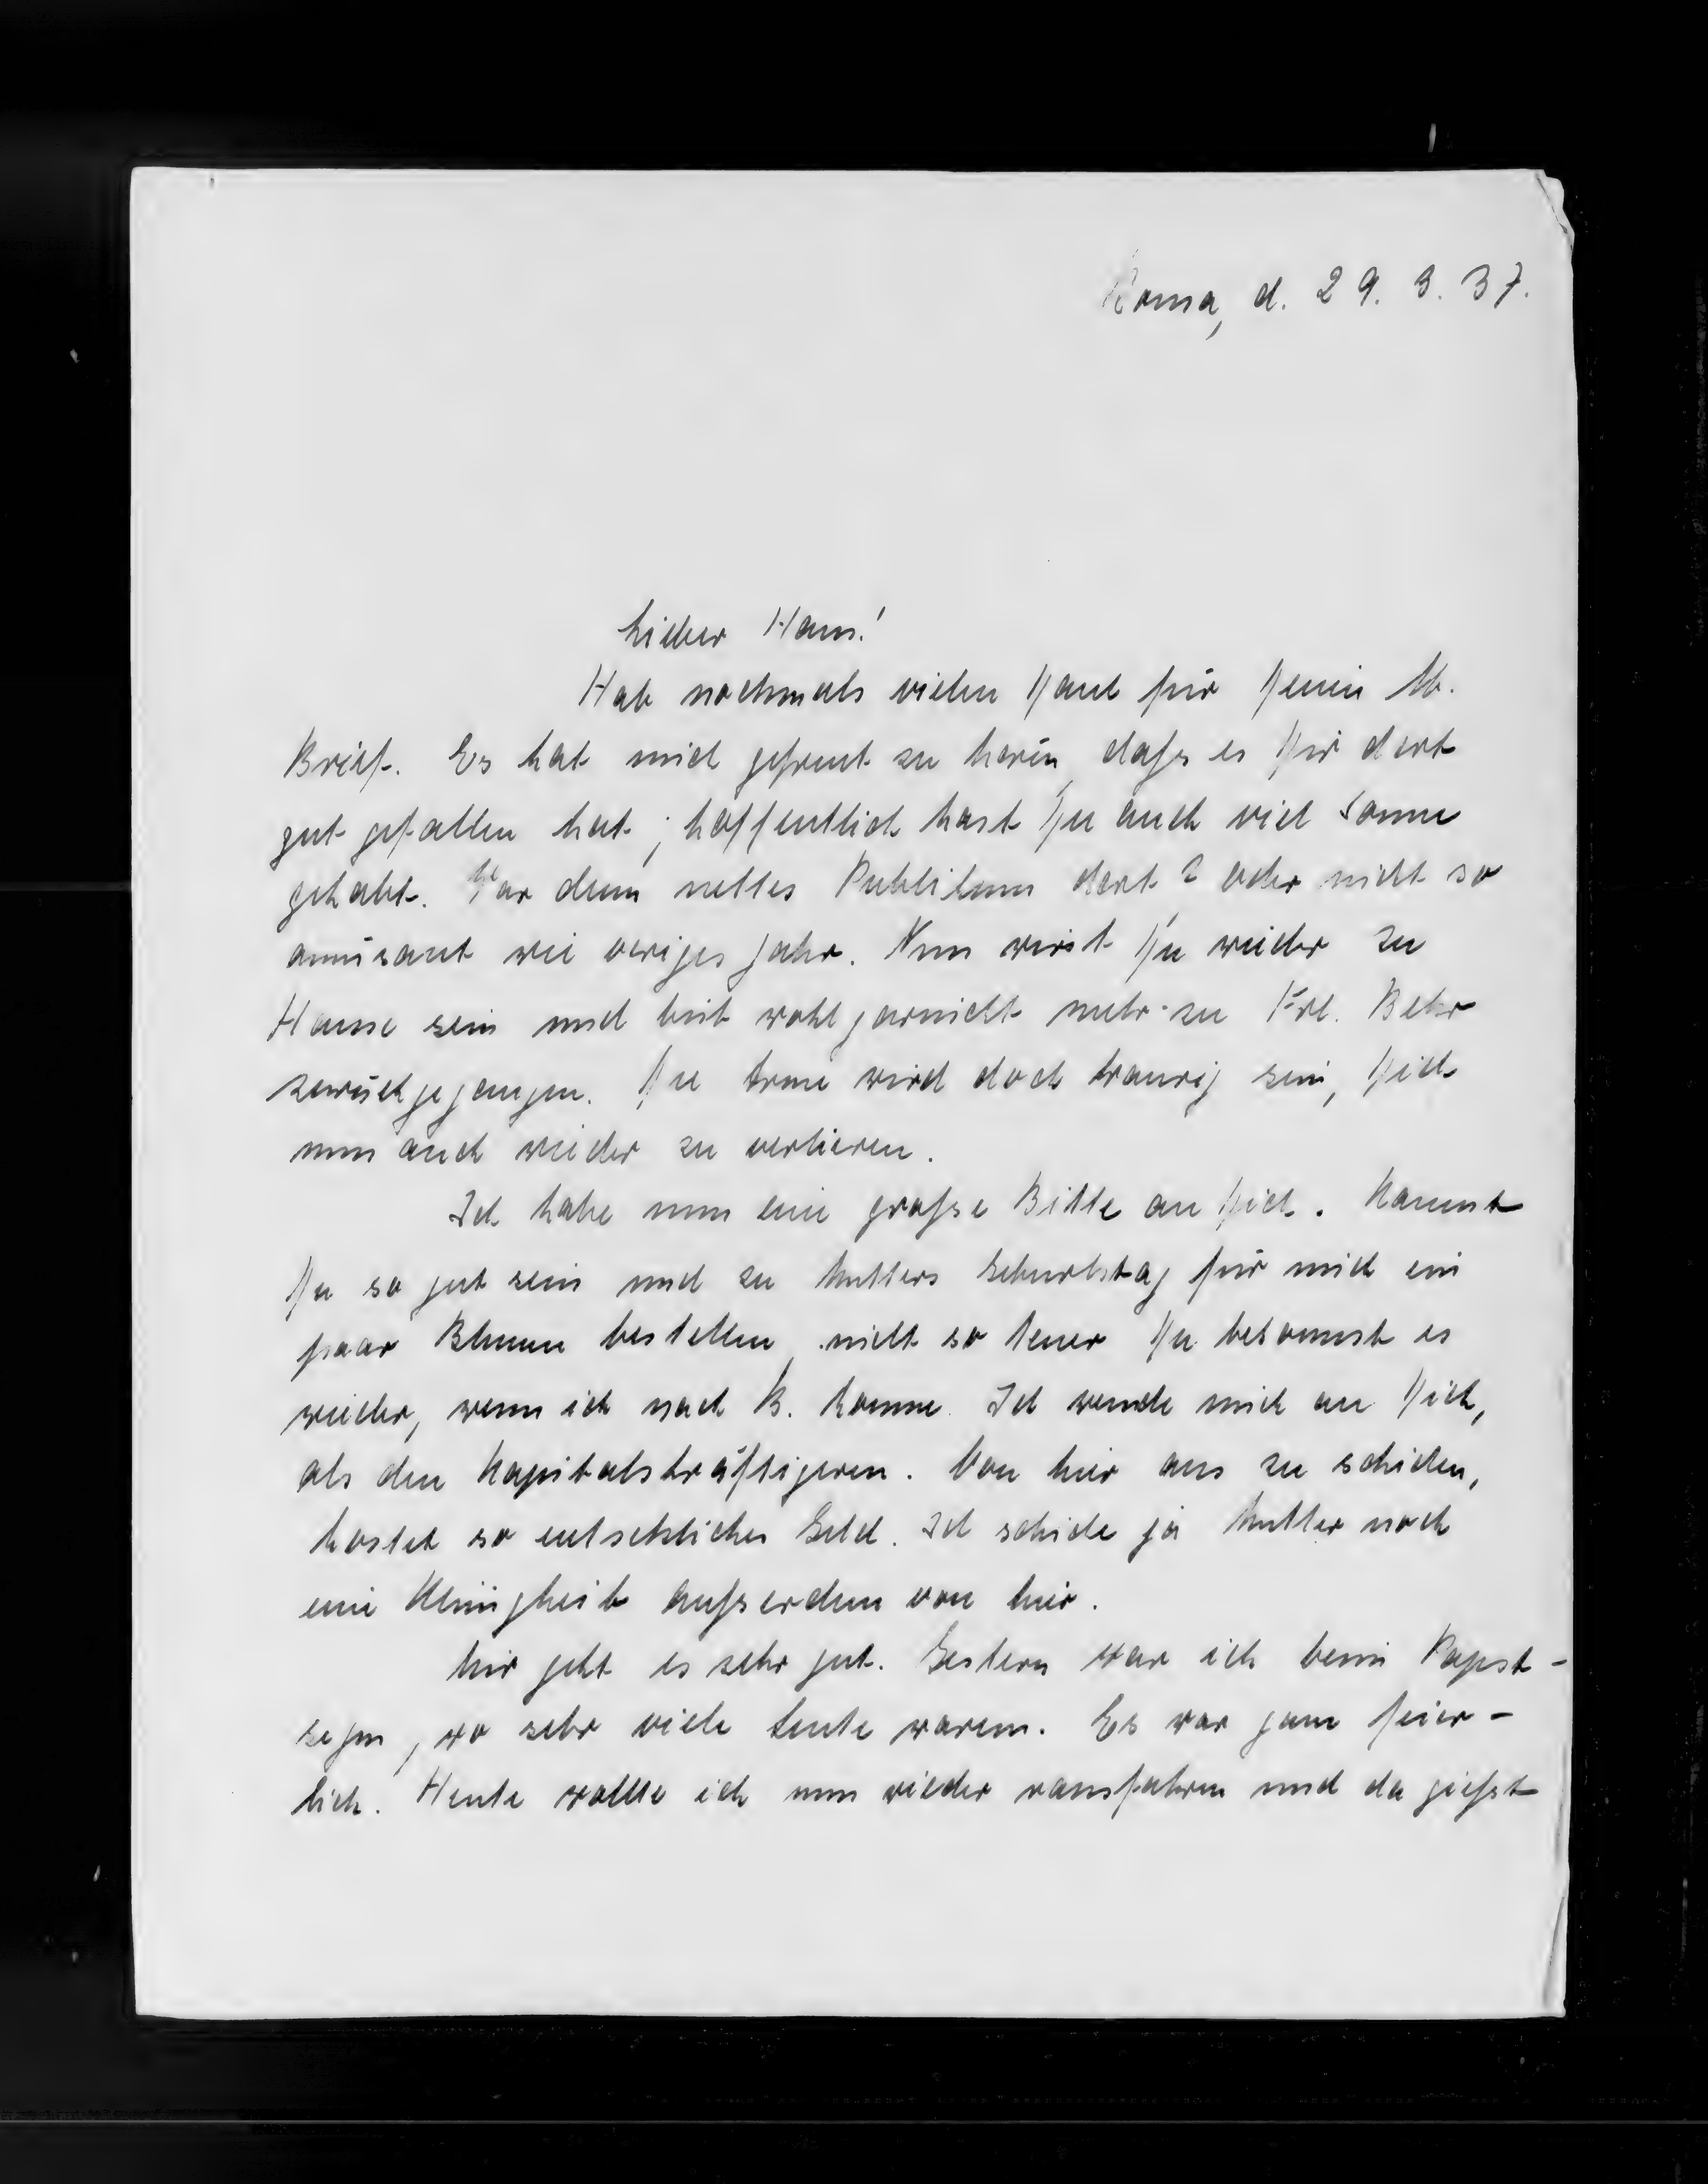 Roma, d. 29. 3. 37.
Lieber Hans!
Hab nochmals vielen Dank für Deinen lb.
Brief. Es hat mich gefreut zu hören, dafs es Dir dort
gut gefallen hat; hoffentlich hast Du auch viel Sonne
gehabt. War denn nettes Publikum dort? oder nicht so
amüsant wie voriges Jahr. Nun wirst Du wieder zu
Hause sein und bist wohl garnicht mehr zu Frl. Behr
zurückgegangen. Die Arme wird doch traurig sein, Dich
nun auch wieder zu verlieren.
Ich habe nun eine grofse Bitte an Dich. Kannst
Du so gut sein und zu Mutters Geburtstag für mich ein
paar Blumen bestellen, nicht so teuer Du bekommst es
wieder, wenn ich nach B. komme. Ich wende mich an Dich,
als den Kapitalskräftigeren. Von hier aus zu schicken,
kostet so entsetzliches Geld. Ich schicke ja Mutter noch
eine Kleinigkeit aufserdem von hier.
Mir geht es sehr gut. Gestern war ich beim Papst-
segen, wo sehr viele Leute waren. Es war ganz feier-
lich. Heute wollte ich nun wieder rausfahren und da giefst